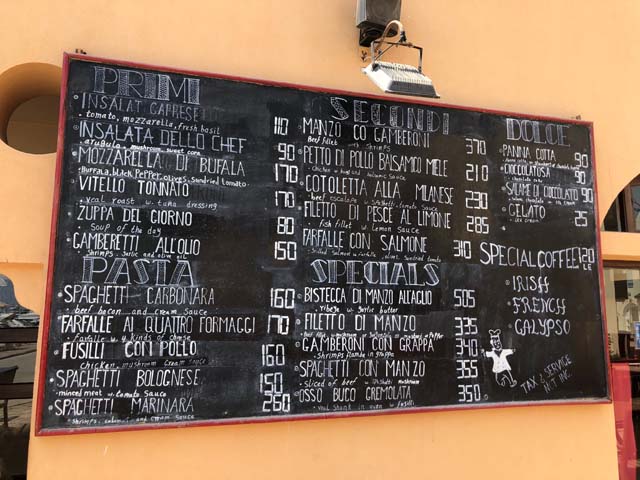 PRIMI
INSALAT CAPRESE 110
• tomato, mozzarella, fresh basil
INSALATA DELLO CHEF 90
arugula, mushroom, sweet corn
MOZZARELLA DI BUFALA 170
Buffala, black Pepper, olives, sundried tomato
VITELLO TONNATO 170
• veal roast w tuna dressing
ZUPPA DEL GIORNO 80
• Soup of the day
GAMBERETTI ALL'OLIO 150
• Shrimps, garlic and olive oil
PASTA
SPAGHETTI CARBONARA 160
• beef bacon and cream sauce
FARFALLE AI QUATTRO FORMAGGI 170
• farfalle w 4 kinds of cheese
FUSILLI CON POLLO 160
chicken, mushroom cream sauce
SPAGHETTI BOLOGNESE 150
• minced meet w tomato Sauce
SPAGHETTI MARINARA 260
• shrimps, calamari and cream sauce
SECONDI
MANZO CO GAMBERONI 370
Beef fillet with shrimps
PETTO DI POLLO BALSAMICO MIELE 210
• Chicken w balsamic sauce
COTOLETTA ALLA MILANESE 230
• beef escalope w spaghetti tomato sauce
FILETTO DI PESCE AL LIMONE 285
• fish fillet w Lemon sauce
FARFALLE CON SALMONE 310
SPECIALS
BISTECCA DI MANZO ALL'AGLIO 505
• ribeye w garlic butter
FILETTO DI MANZO 335
GAMBERONI CON GRAPPA 340
• shrimps flambe in grappa
SPAGHETTI CON MANZO 355
• sliced of beef w spaghetti mushroom
OSSO BUCO GREMOLATA 350
• veal shank in oven w fusilli
DOLCE
PANINA COTTA 90
CIOCCOLATOSA 90
• chocolate cake
SALAME DI CIOCCOLATO 90
GELATO 25
• ice cream
SPECIAL COFFEE 120 LE
• IRISH
• FRENCH
• CALYPSO
TAX & SERVICE
NOT INC.